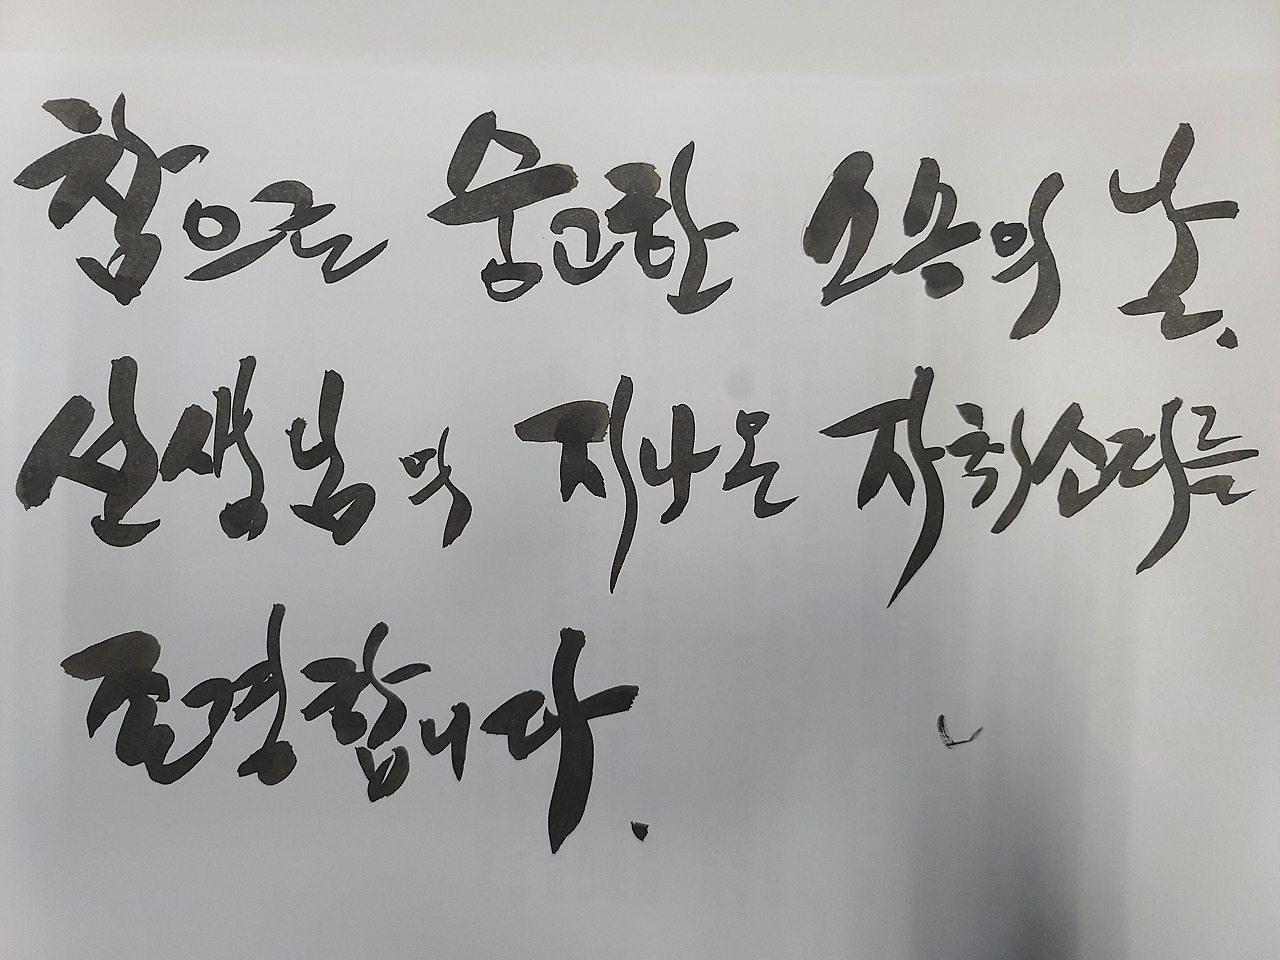 참으로 숭고한 스승의 날.
선생님의 지나온 자취
존경합니다.